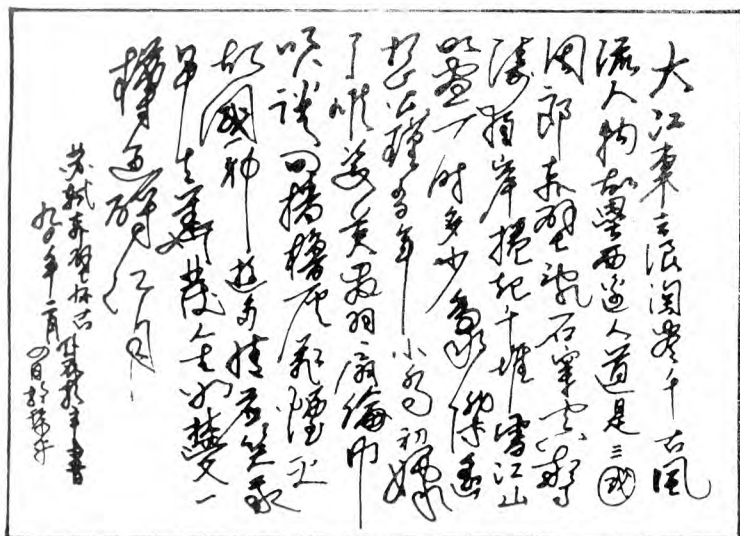 大江東去浪淘尽千古風
流人物故壘西邊人道是三國
周郎赤壁亂石穿空驚
濤拍岸捲起千堆雪江山
如画一时多少豪傑遙
想公瑾当年小喬初嫁
了雄姿英發羽扇綸巾
笑談间檣櫓灰飛煙灭
故國神遊多情應笑我
早生華髮人生如夢一
樽还酹江月
苏軾赤壁怀古 書
九〇年二月